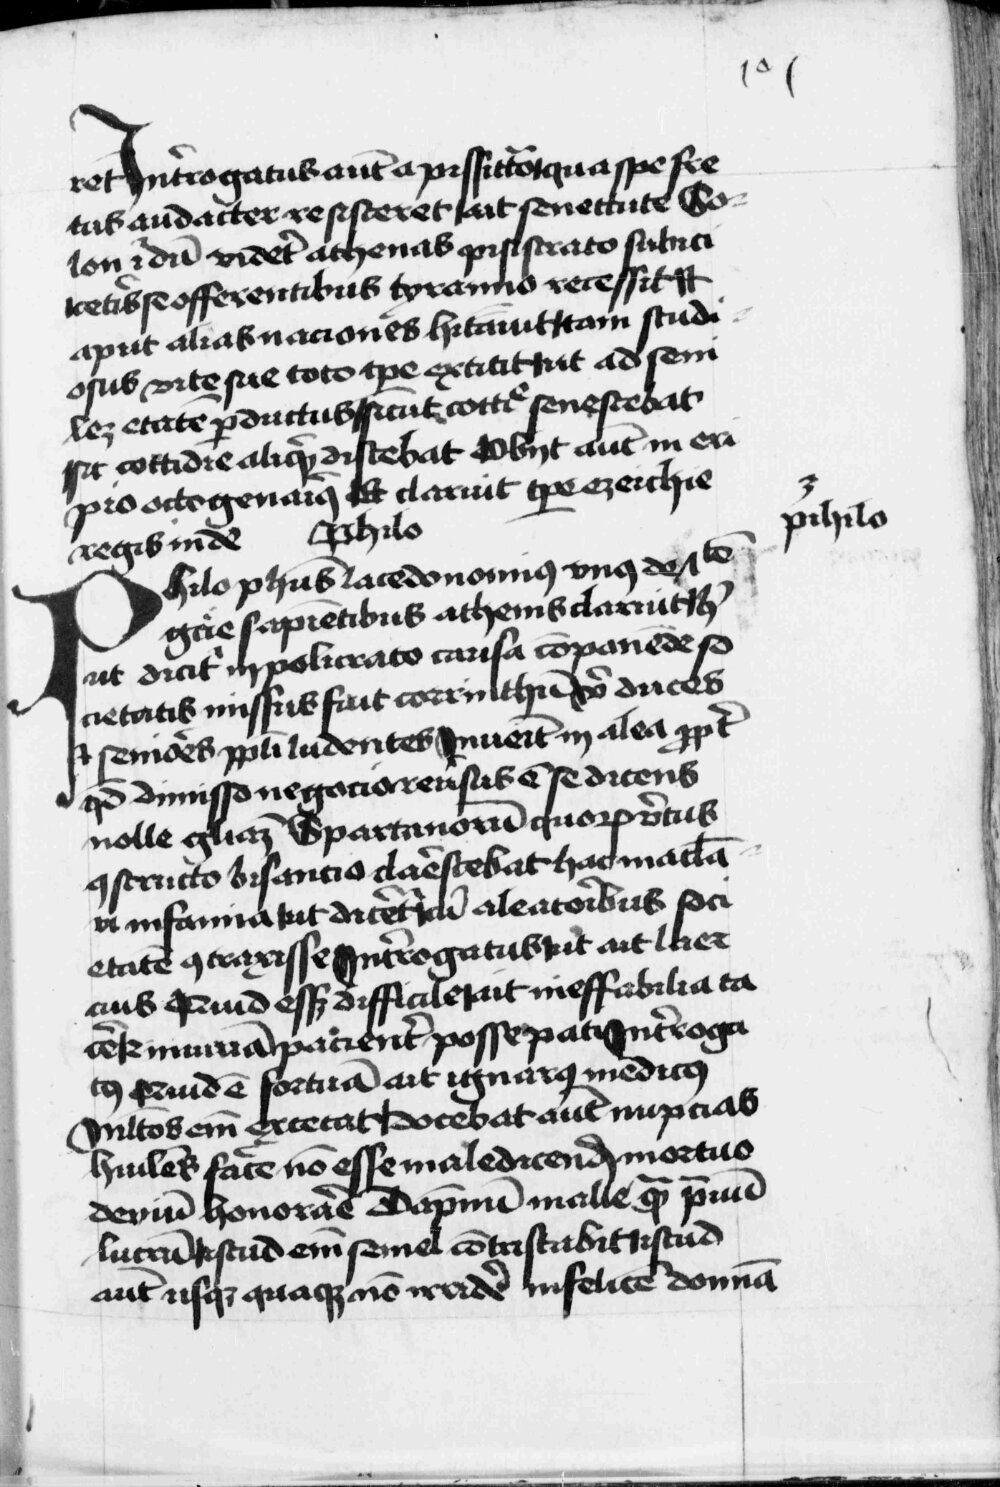 ret Int̾rogatus aūt a pissitrāo qua spe fre
tus audacter resisteret ait senectute So-
lon ī dū vidēt̾ athenas pisistrato subici
cetīs se offerentibus tyranno recessit Et
aput alias naciones hitāuit tam studi-
osus vite sue toto tp̄e extitit ut ad seni
lez etatē p̄ductus sicut cottıͤ senescebat
sic cottidie aliqͥd discebat Obijt aūt in cri
pro octogenariꝰ Et claruit tp̄e ezeichie
regis iude Philo
3
philo
Philo ph̄us lacedononiuꝰ vnꝰ de 7tē
gr̄ie sapiētibus athenis claruit hͨ
ut dicit̾ in policrato causa cōponēde so
cietatis missus fuit corrinthū vb̾ duces
⁊ seniōes pp̄li ludentes Inueīt in alea ꝓpt̾
qd̄ dimisso negocio reu̾sus ē se dicens
nolle gl̄iaꝫ Spartanorū quoꝝ v̾tus
ꝯstructo bisantio clar̄escebat hac macl̄a
ri infamia ut dicēr̄et̾ cū aleatoribus soci
etatē ꝯtraxisse Int̾rogatus ut ait laer
cius Quid essꝫ difficile ait ineffabilia ta
cēr̾ ⁊ iniuriā pacient̾ posse pati Int̾roga
tꝰ Quid ē fortūa ait ignarꝰ medicꝰ
Mltōs em̄ excecat Docebat aūt nupcias
hūiles fac̾e nō esse maledicend̄ mortuo
deuiū honorar̄e Dāpnū malle qͣ p̄uū
lucrū istud em̄ semel cōtristabit istud
aūt usqꝫ quaqꝫ nō irridēr̾ infelicē domīa